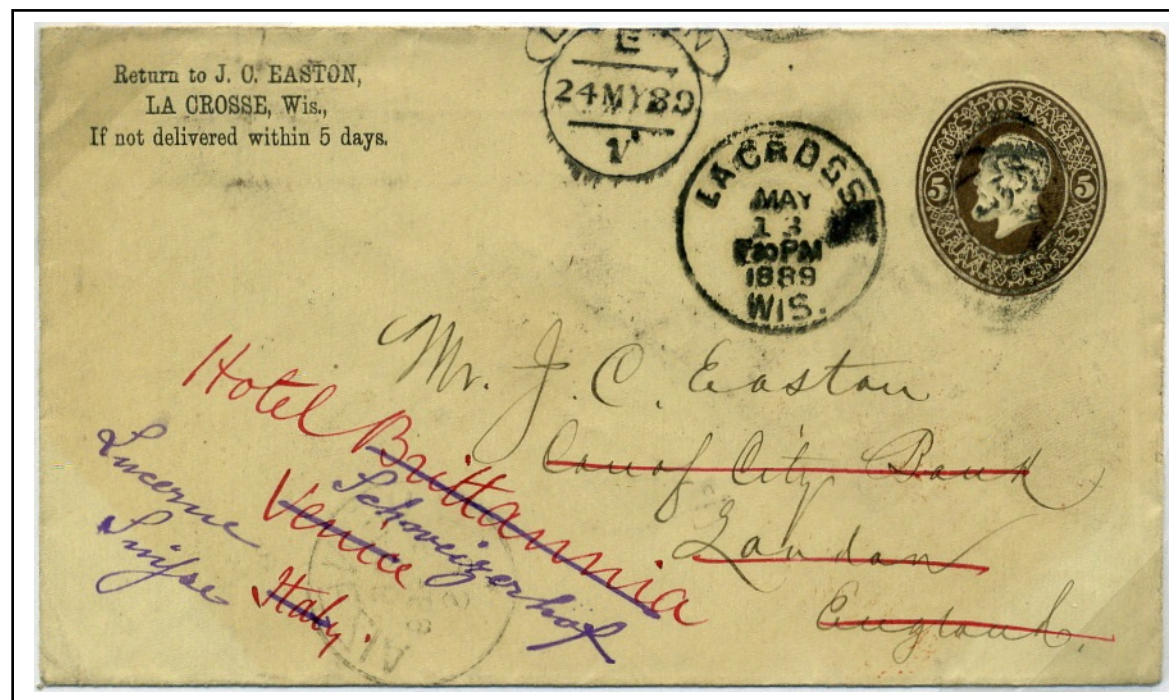 Return to J. C. EASTON,
LA CROSSE, Wis.,
If not delivered within 5 days.
E
24 MY 89
LA CROSS
MAY
13
PM
1889
WIS.
U.S. POSTAGE
5 5
FIVE CENTS
Mr. J. C. Easton
Care of City Bank
London
England.
Hotel Brittannia
Venice
Italy.
Schweizerhof
Lucerne
Suisse